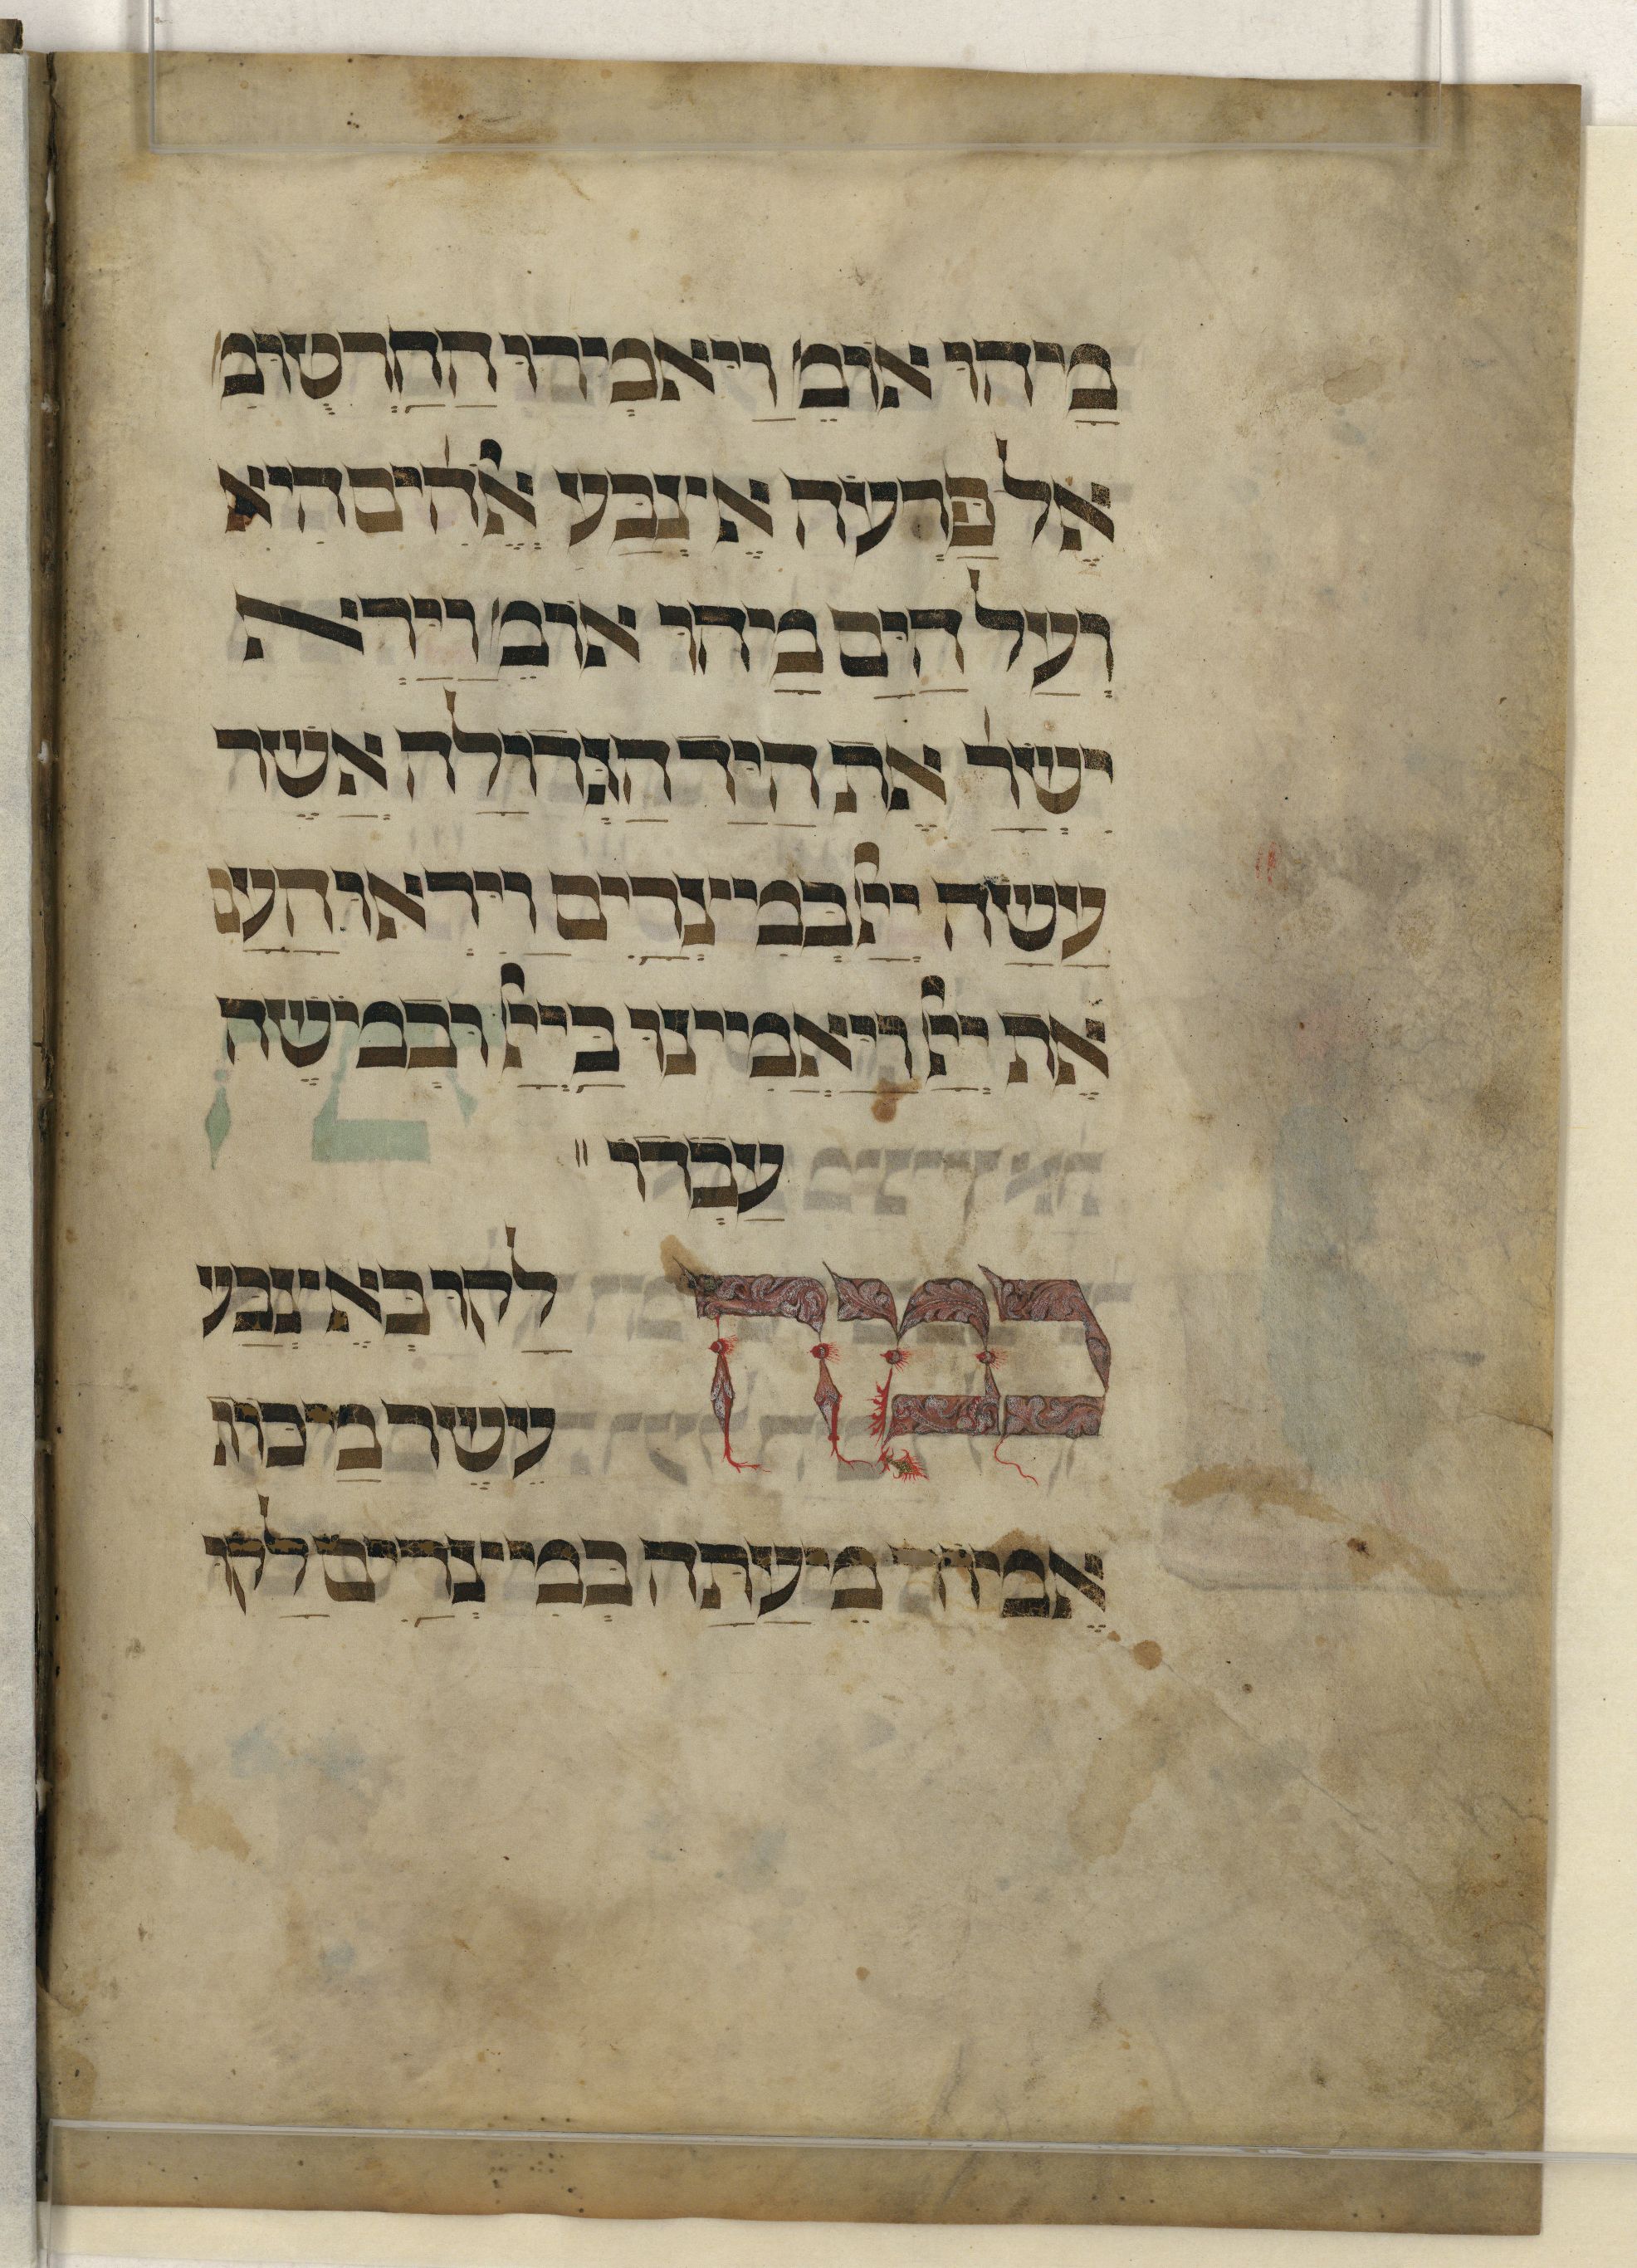 מהו אומ' ויאמרו החרטומ'
אל פרעה אצבע אלהים היא
ועל הים מהו אומ' וירא
ישר' את היד הגדולה אשר
עשה ייי במצרים ויראו העם
את ייי ויאמינו בייי ובמשה
עבדו
כמה לקו באצבע
עשר מכות
אמור מעתה במצרים לקו